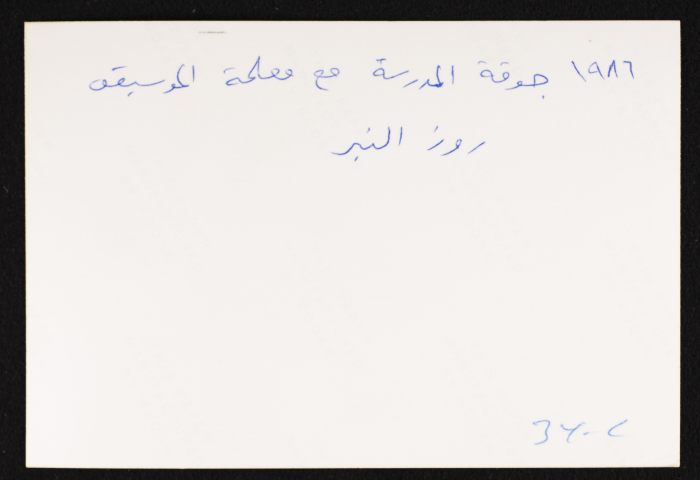 ١٩٨٦ جوقة المدرسة مع معلمة الموسيقى
روز النبر